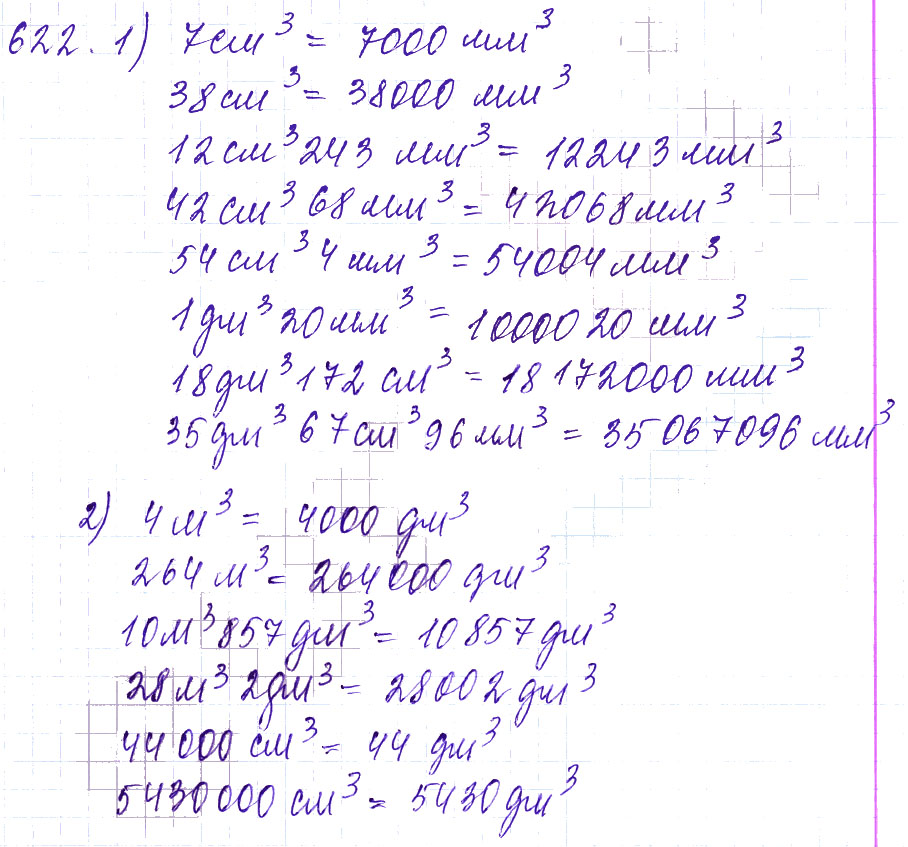 622. 1) 7 см³ = 7000 мм³
38 см³ = 38000 мм³
12 см³ 243 мм³ = 12243 мм³
42 см³ 68 мм³ = 42068 мм³
54 см³ 4 мм³ = 54004 мм³
1 дм³ 20 мм³ = 1000020 мм³
18 дм³ 172 см³ = 18172000 мм³
35 дм³ 67 см³ 96 мм³ = 35067096 мм³
2) 4 м³ = 4000 дм³
264 м³ = 264000 дм³
10 м³ 857 дм³ = 10857 дм³
28 м³ 2 дм³ = 28002 дм³
44000 см³ = 44 дм³
5430000 см³ = 5430 дм³